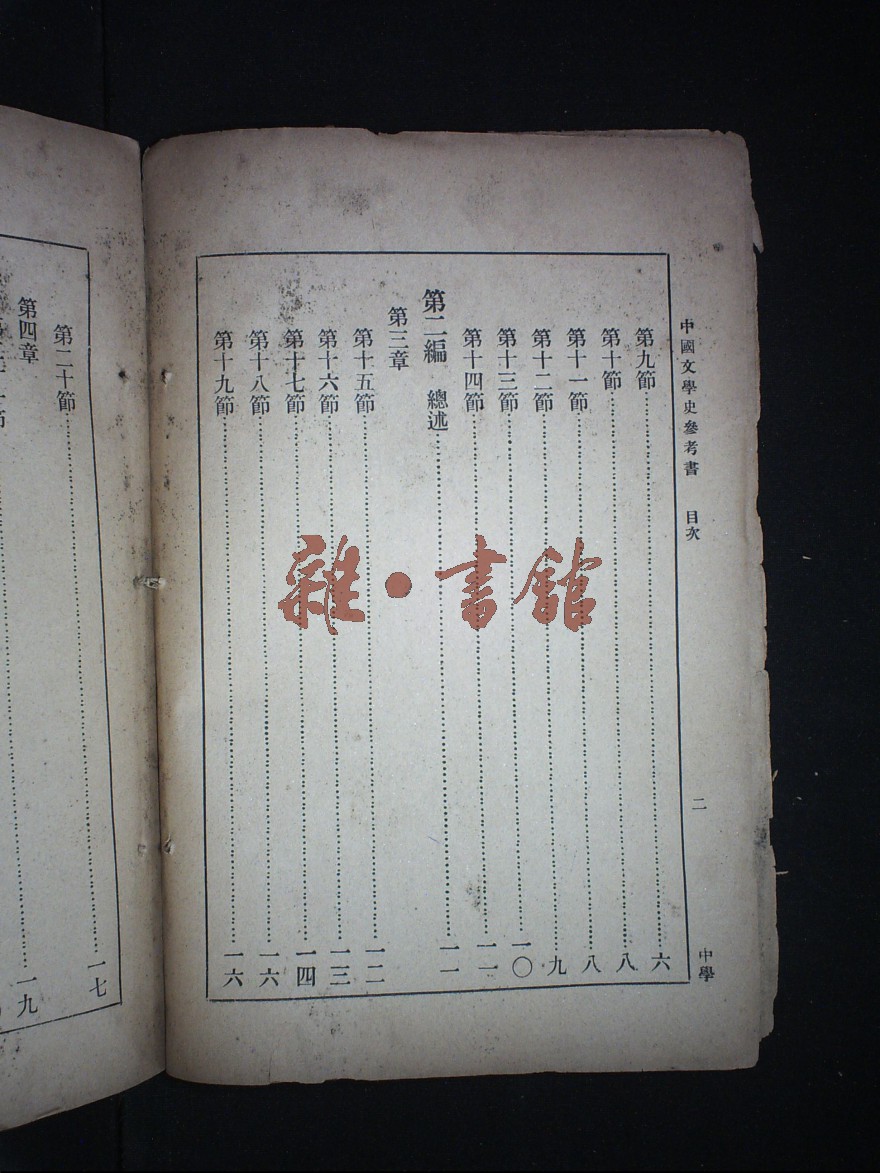 中國文學史參考書　目次
二
中學
第九節……六
第十節……八
第十一節……八
第十二節……九
第十三節……一〇
第十四節……一一
第二編　總述……一一
第三章
第十五節……一二
第十六節……一三
第十七節……一四
第十八節……一六
第十九節……一六
雜·書館
第二十節……一七
第四章……一九